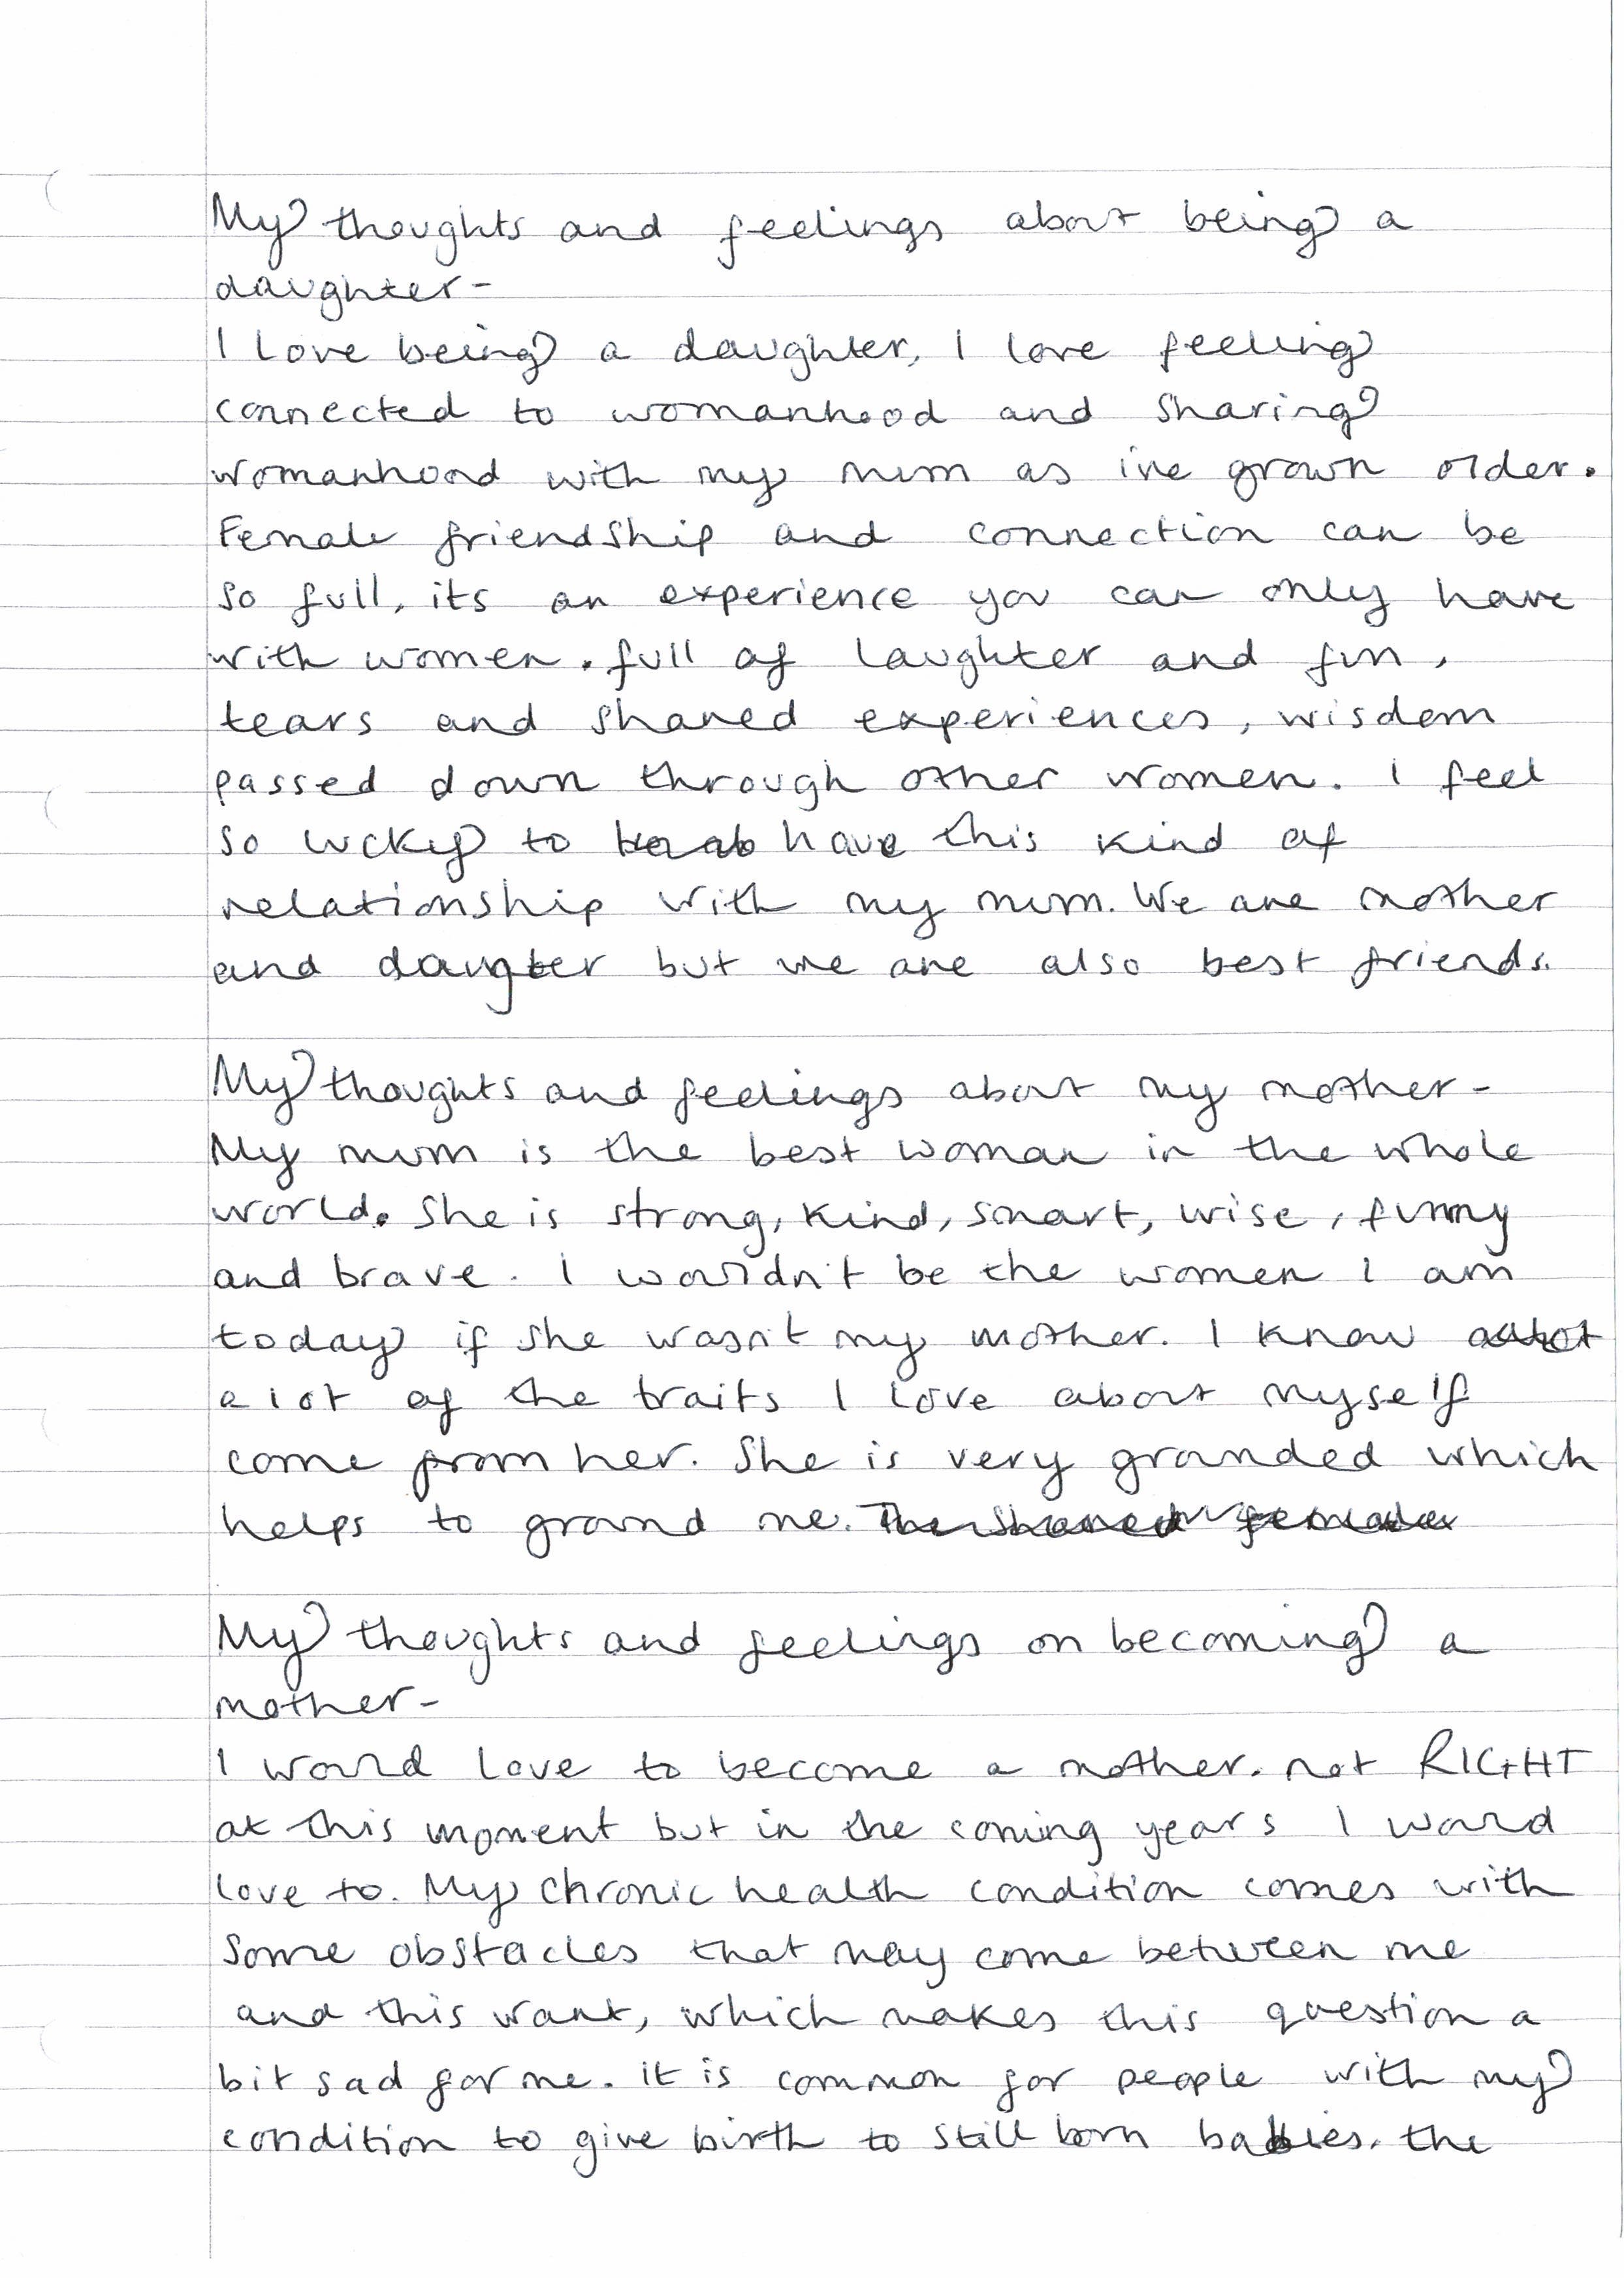 My thoughts and feelings about being a
daughter-
I love being a daughter, I love feeling
connected to womanhood and sharing
womanhood with my mum as ive grown older.
Female friendship and connection can be
so full, its an experience you can only have
with women. full of laughter and fun,
tears and shared experiences, wisdom
passed down through other women. I feel
so lucky to have this kind of
relationship with my mum. We are mother
and daugter but we are also best friends.
My thoughts and feelings about my mother-
My mum is the best woman in the whole
world. She is strong, kind, smart, wise, funny
and brave. I wouldn't be the women I am
today if she wasn't my mother. I know
a lot of the traits I love about myself
come from her. She is very grounded which
helps to ground me. The shared female
My thoughts and feelings on becoming a
mother-
I would love to become a mother. not RIGHT
at this moment but in the coming years I would
love to. My chronic health condition comes with
some obstacles that may come between me
and this want, which makes this question a
bit sad for me. it is common for people with my
condition to give birth to still born babies. the